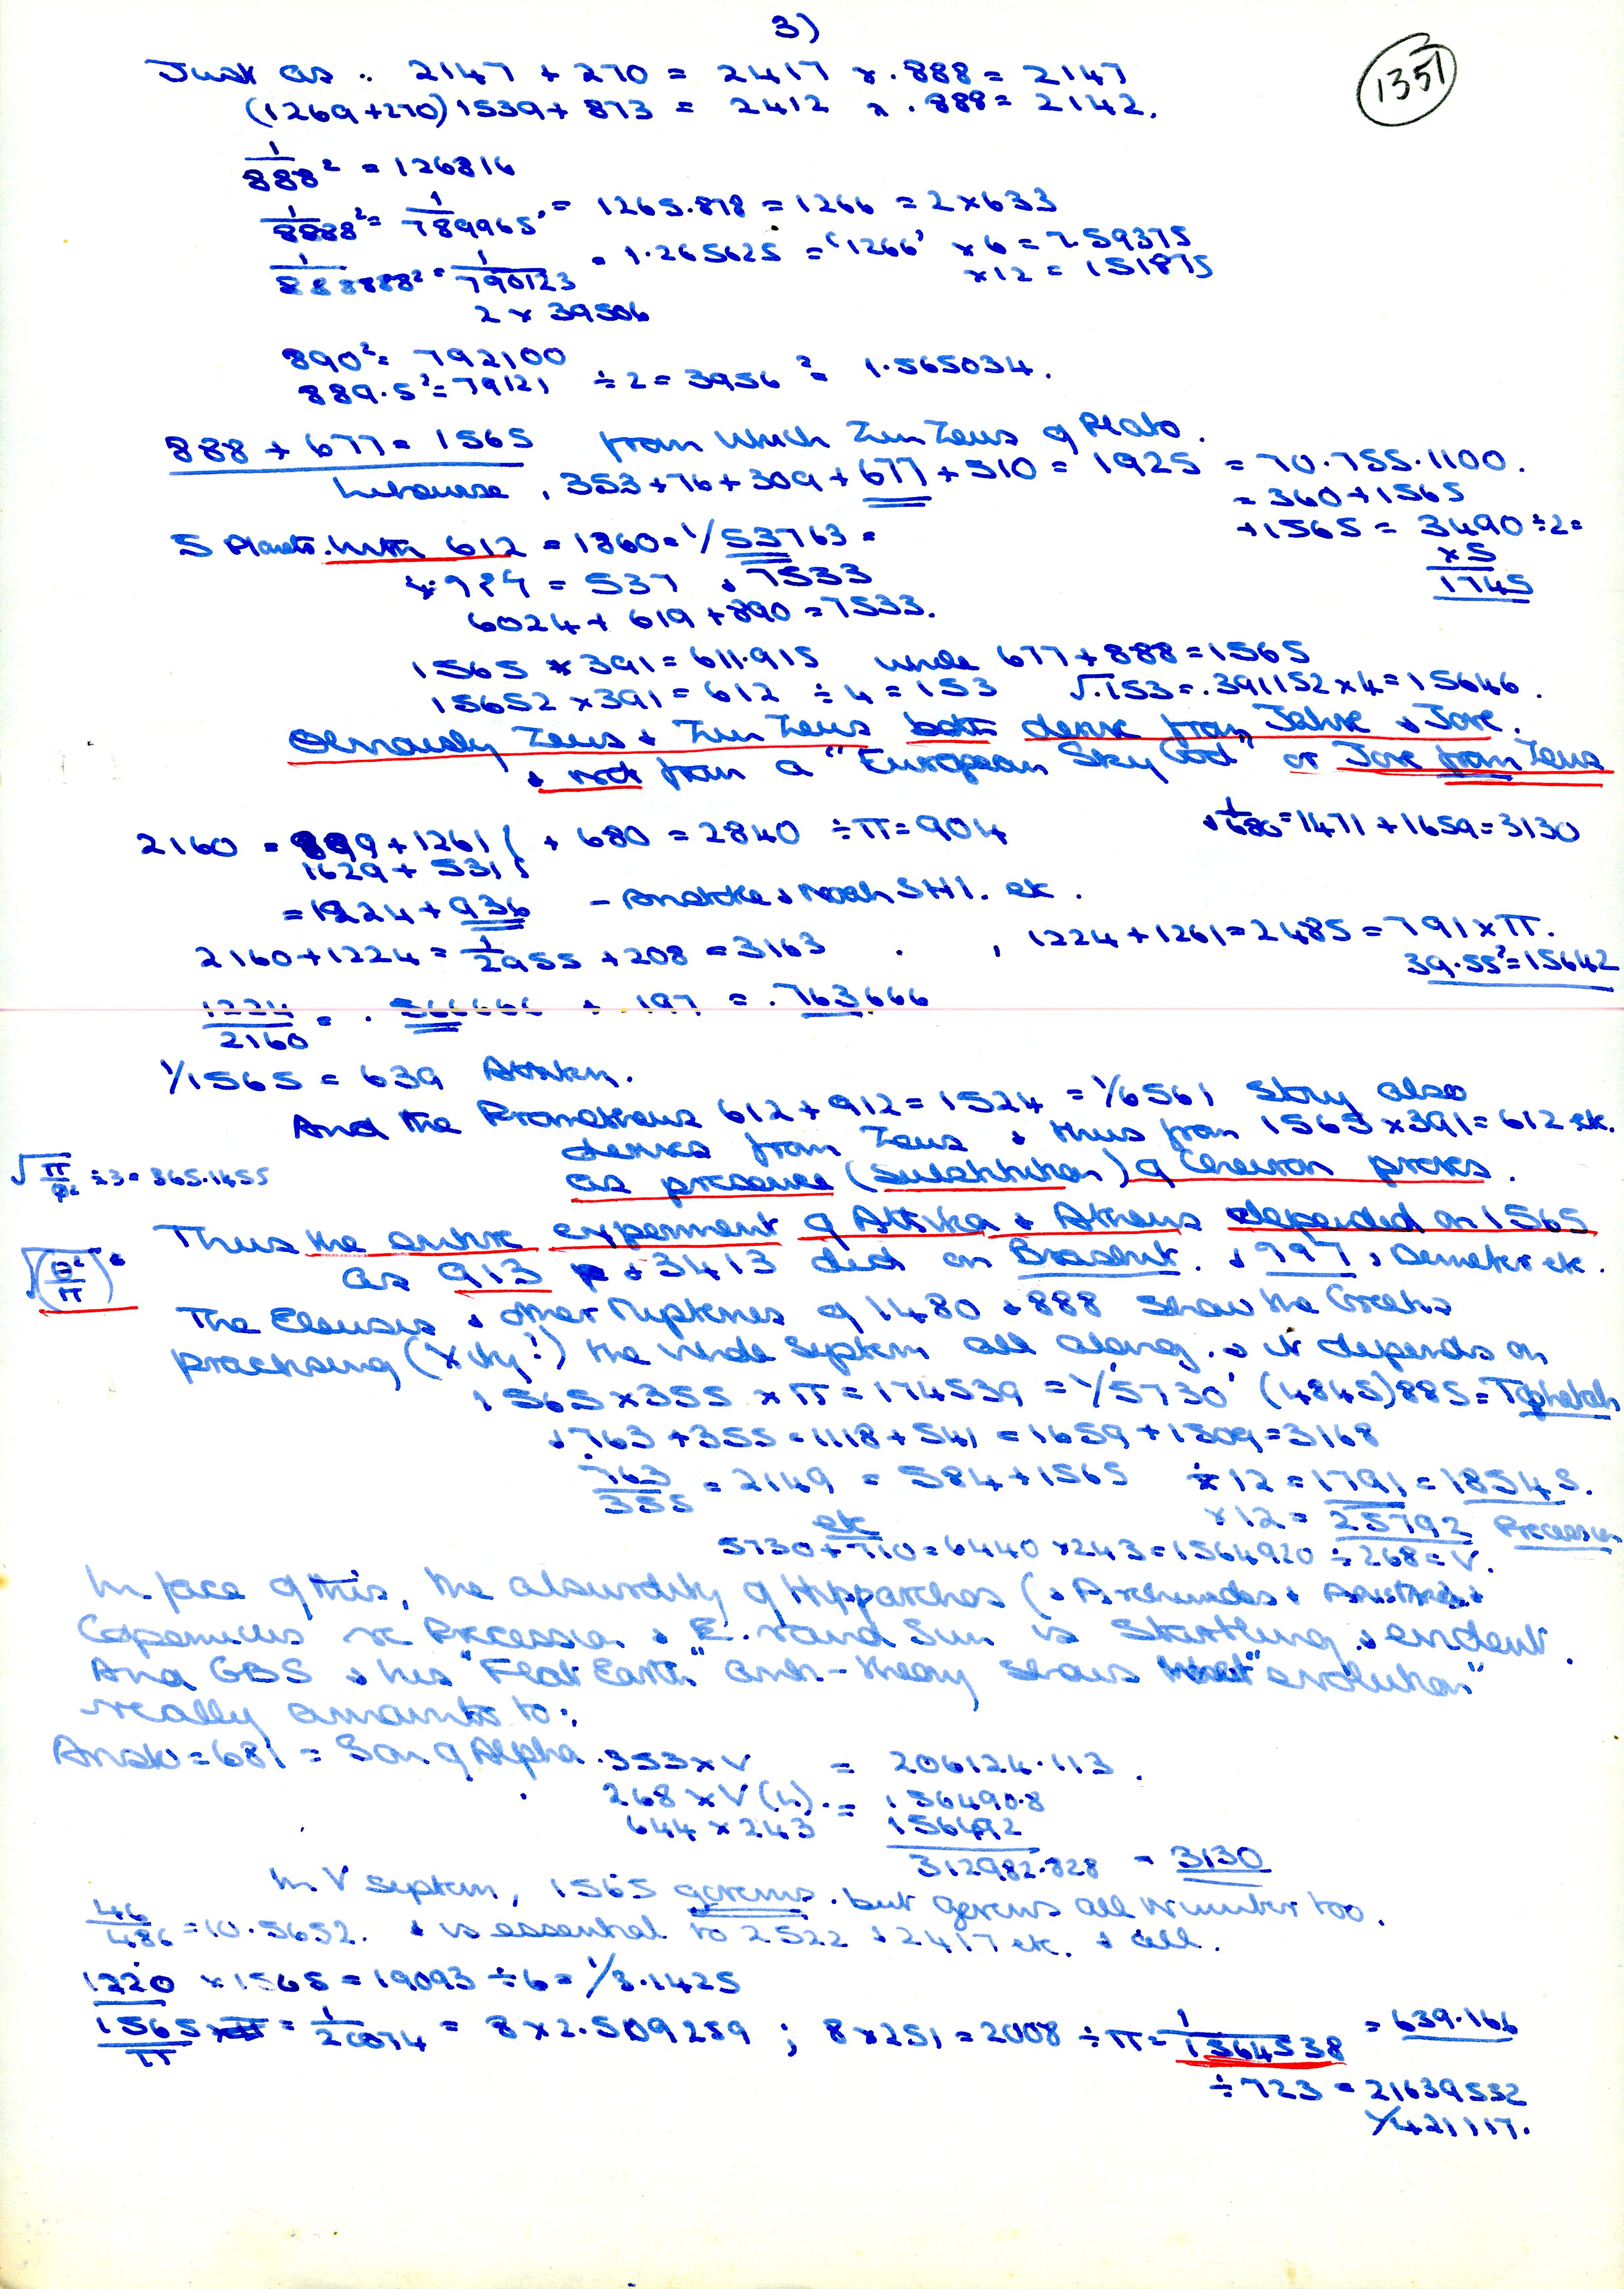 3)
1351
Just as . 2147 + 270 = 2417 x .888 = 2147
(1269+270) 1539 + 873 = 2412 x .888 = 2142.
1/888² = 126816
1/8888² = 1/789965 = 1265.878 = 1266 = 2×633
1/888888² = 1/790123 = 1.265625 = '1266' x 6 = 7.59375
x12 = 151875
2 x 39506
890² = 792100
889.5² = 79121 ÷ 2 = 3956 ² = 1.565034.
888 + 677 = 1565 from which Zun Zeus of Plato.
353+76+309+677+510 = 1925 = 70.755.1100.
= 360+1565
+1565 = 3490 ÷2=
x5
1745
5 Planets. With 612 = 1860 = 1/53763 =
= 537 & 7533
6024 + 619 + 890 = 7533.
1565 x 391 = 611.915 while 677+888=1565
15652 x 391 = 612 ÷ 4 = 153 √.153 = .391152 x 4 = 15646.
Obviously Zeus & Zun Zeus both derive from Jahve & Jove.
& not from a "European Sky God" or Jove from Zeus
2160 = 899 + 1261 ( + 680 = 2840 ÷ π = 904
& 1/680 = 1471 + 1659 = 3130
1629 + 531
= 1224 + 936 - & Noah SHI. etc.
2160+1224 = 1/2955 + 208 = 3163 . , 1224+1261=2485 = 791 x π.
39.55² = 15642
1224/2160 = .566666 + .197 = .763,666
1/1565 = 639
And the Prometheus 612+912=1524 = 1/6561 story also
derives from Zeus & thus from 1565x391=612 etc.
as presence (substitution) of Cheiron proves.
÷3=365.1455
Thus the entire experiment of Attika & Athens depended on 1565
as 913 & 3413 did on . & 997, Demeter etc.
The Eleusis & other Mysteries of 1480 & 888 show the Greeks
practising (Xity!) the whole system all along. & it depends on
1565 x 355 x π = 174539 = 1/5730 (4845) 885 = Tophetah
& 763 + 355 = 1118 + 541 = 1659 + 1509 = 3168
763/355 = 2149 = 584 + 1565 ÷ 12 = 1791 = 18545.
x12 = 25792 Precession
etc
5730+710=6440 x 243=1564920 ÷ 268 = V.
In face of this, the absurdity of Hipparchos (& Archimedes &
Copernicus re Precession & E. round Sun is startling & evident.
And GBS & his "Flat Earth" anti-theory shows what "evolution"
really amounts to:
= 681 = Son of Alpha. 353 x V = 206124.113.
268 x V (4). = 156490.8
644 x 243 156492
312982.828 = 3130
In V system, 1565 governs. but governs all number too.
46/486 = 10.5652. & is essential to 2522 & 2417 etc. & all.
1220 x 1565 = 19093 ÷ 6 = 1/3.1425
1565/π = 1/20074 = 8 x 2.509259 ; 8 x 251 = 2008 ÷ π = 1/1564538 = 639.166
÷ 723 = 21639532
1/421117.